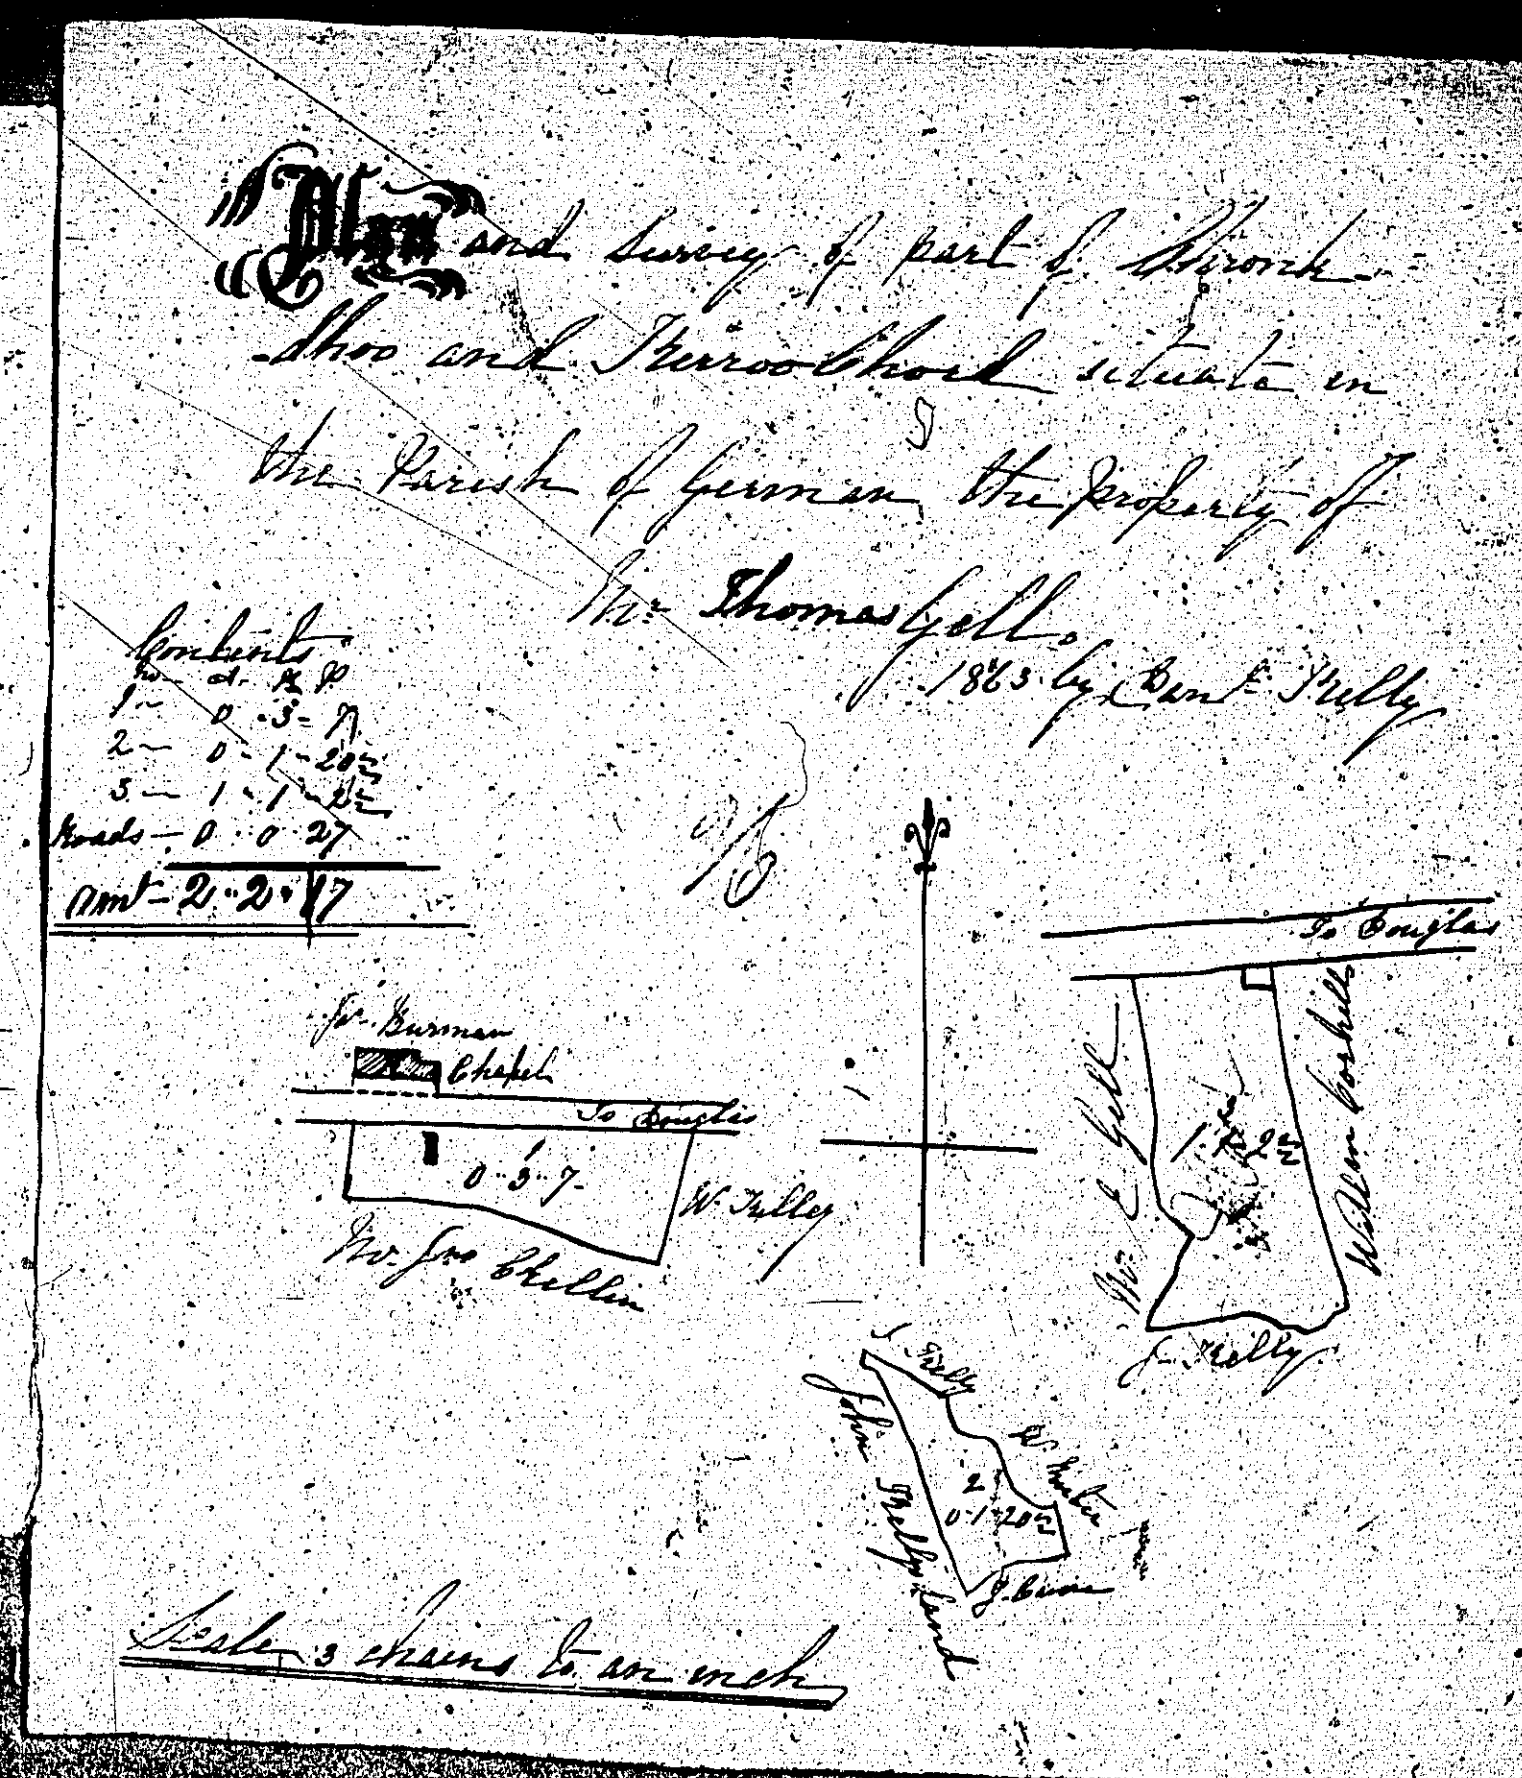 Plan and Survey of part of Shronk-
-dhoo and Kerroo Choid situate in
the Parish of German, the Property of
Mr. Thomas Gell.
1863 by Benn Kelly
Contents
No A. R P
1 - 0 . 3 - 7
2 - 0 - 1 - 20½
3 - 1 - 1 - 2½
Roads - 0 . 0 . 27
Amt - 2 .. 2 .. 17
To Douglas
Burman
Chapel
To Douglas
1
0 .. 3 .. 7 -
W. Kelly
Mr. Jno Chellin
Mr. E Gell
1. 1. 2½
3
William Corkill
J. Kelly
J Kelly
John Kellys Land
2
0 - 1 - 20½
Scale 3 chains to an inch